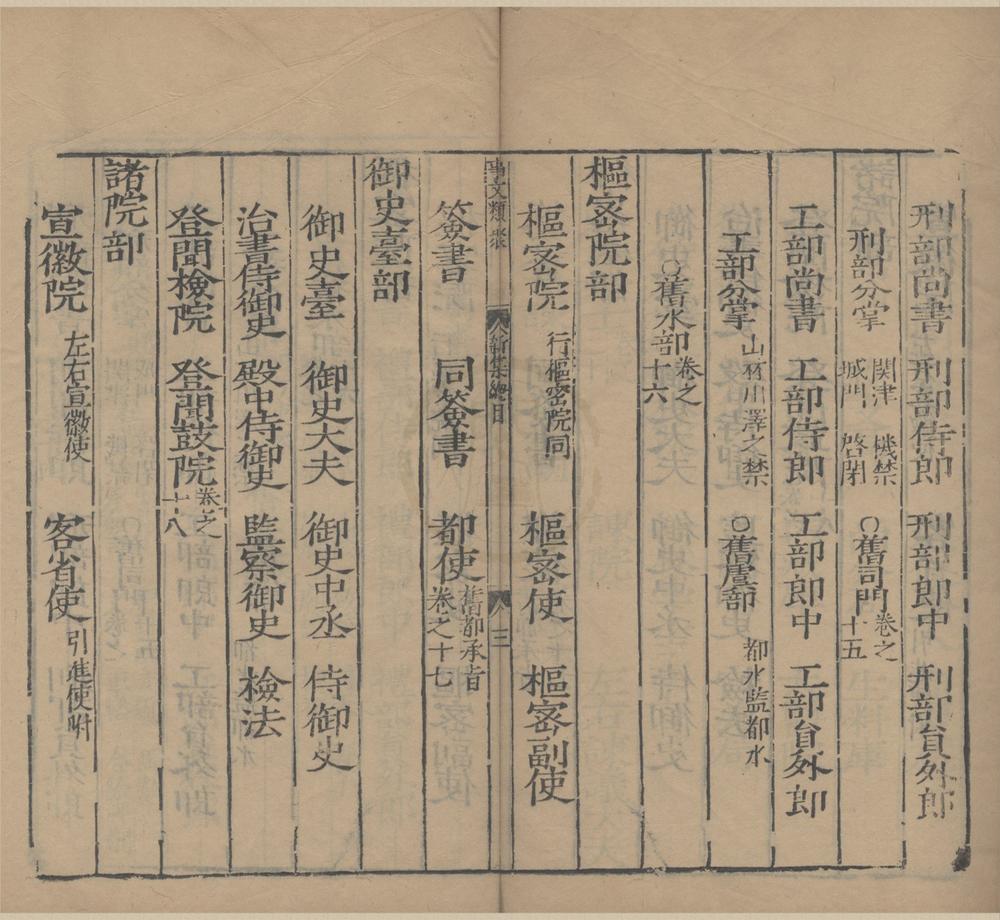 刑部尚書 刑部侍郎 刑部郎中 刑部貟外郎
刑部分掌 関津 機禁 城門 啓閉 ○舊司門 卷之十五
工部尚書 工部侍郎 工部郎中 工部貟外郎
工部分掌 山林川澤之禁 ○舊虞部 都水監都水
○舊水部 卷之十六
樞宻院部
樞宻院 行樞宻院同 樞宻使 樞宻副使
事文類聚 新集總目 三
簽書 同簽書 都使 舊都承旨 卷之十七
御史臺部
御史臺 御史大夫 御史中丞 侍御史
治書侍御史 殿中侍御史 監察御史 檢法
登聞檢院 登聞鼓院 卷之十八
諸院部
宣徽院 左右宣徽使 客省使 引進使附